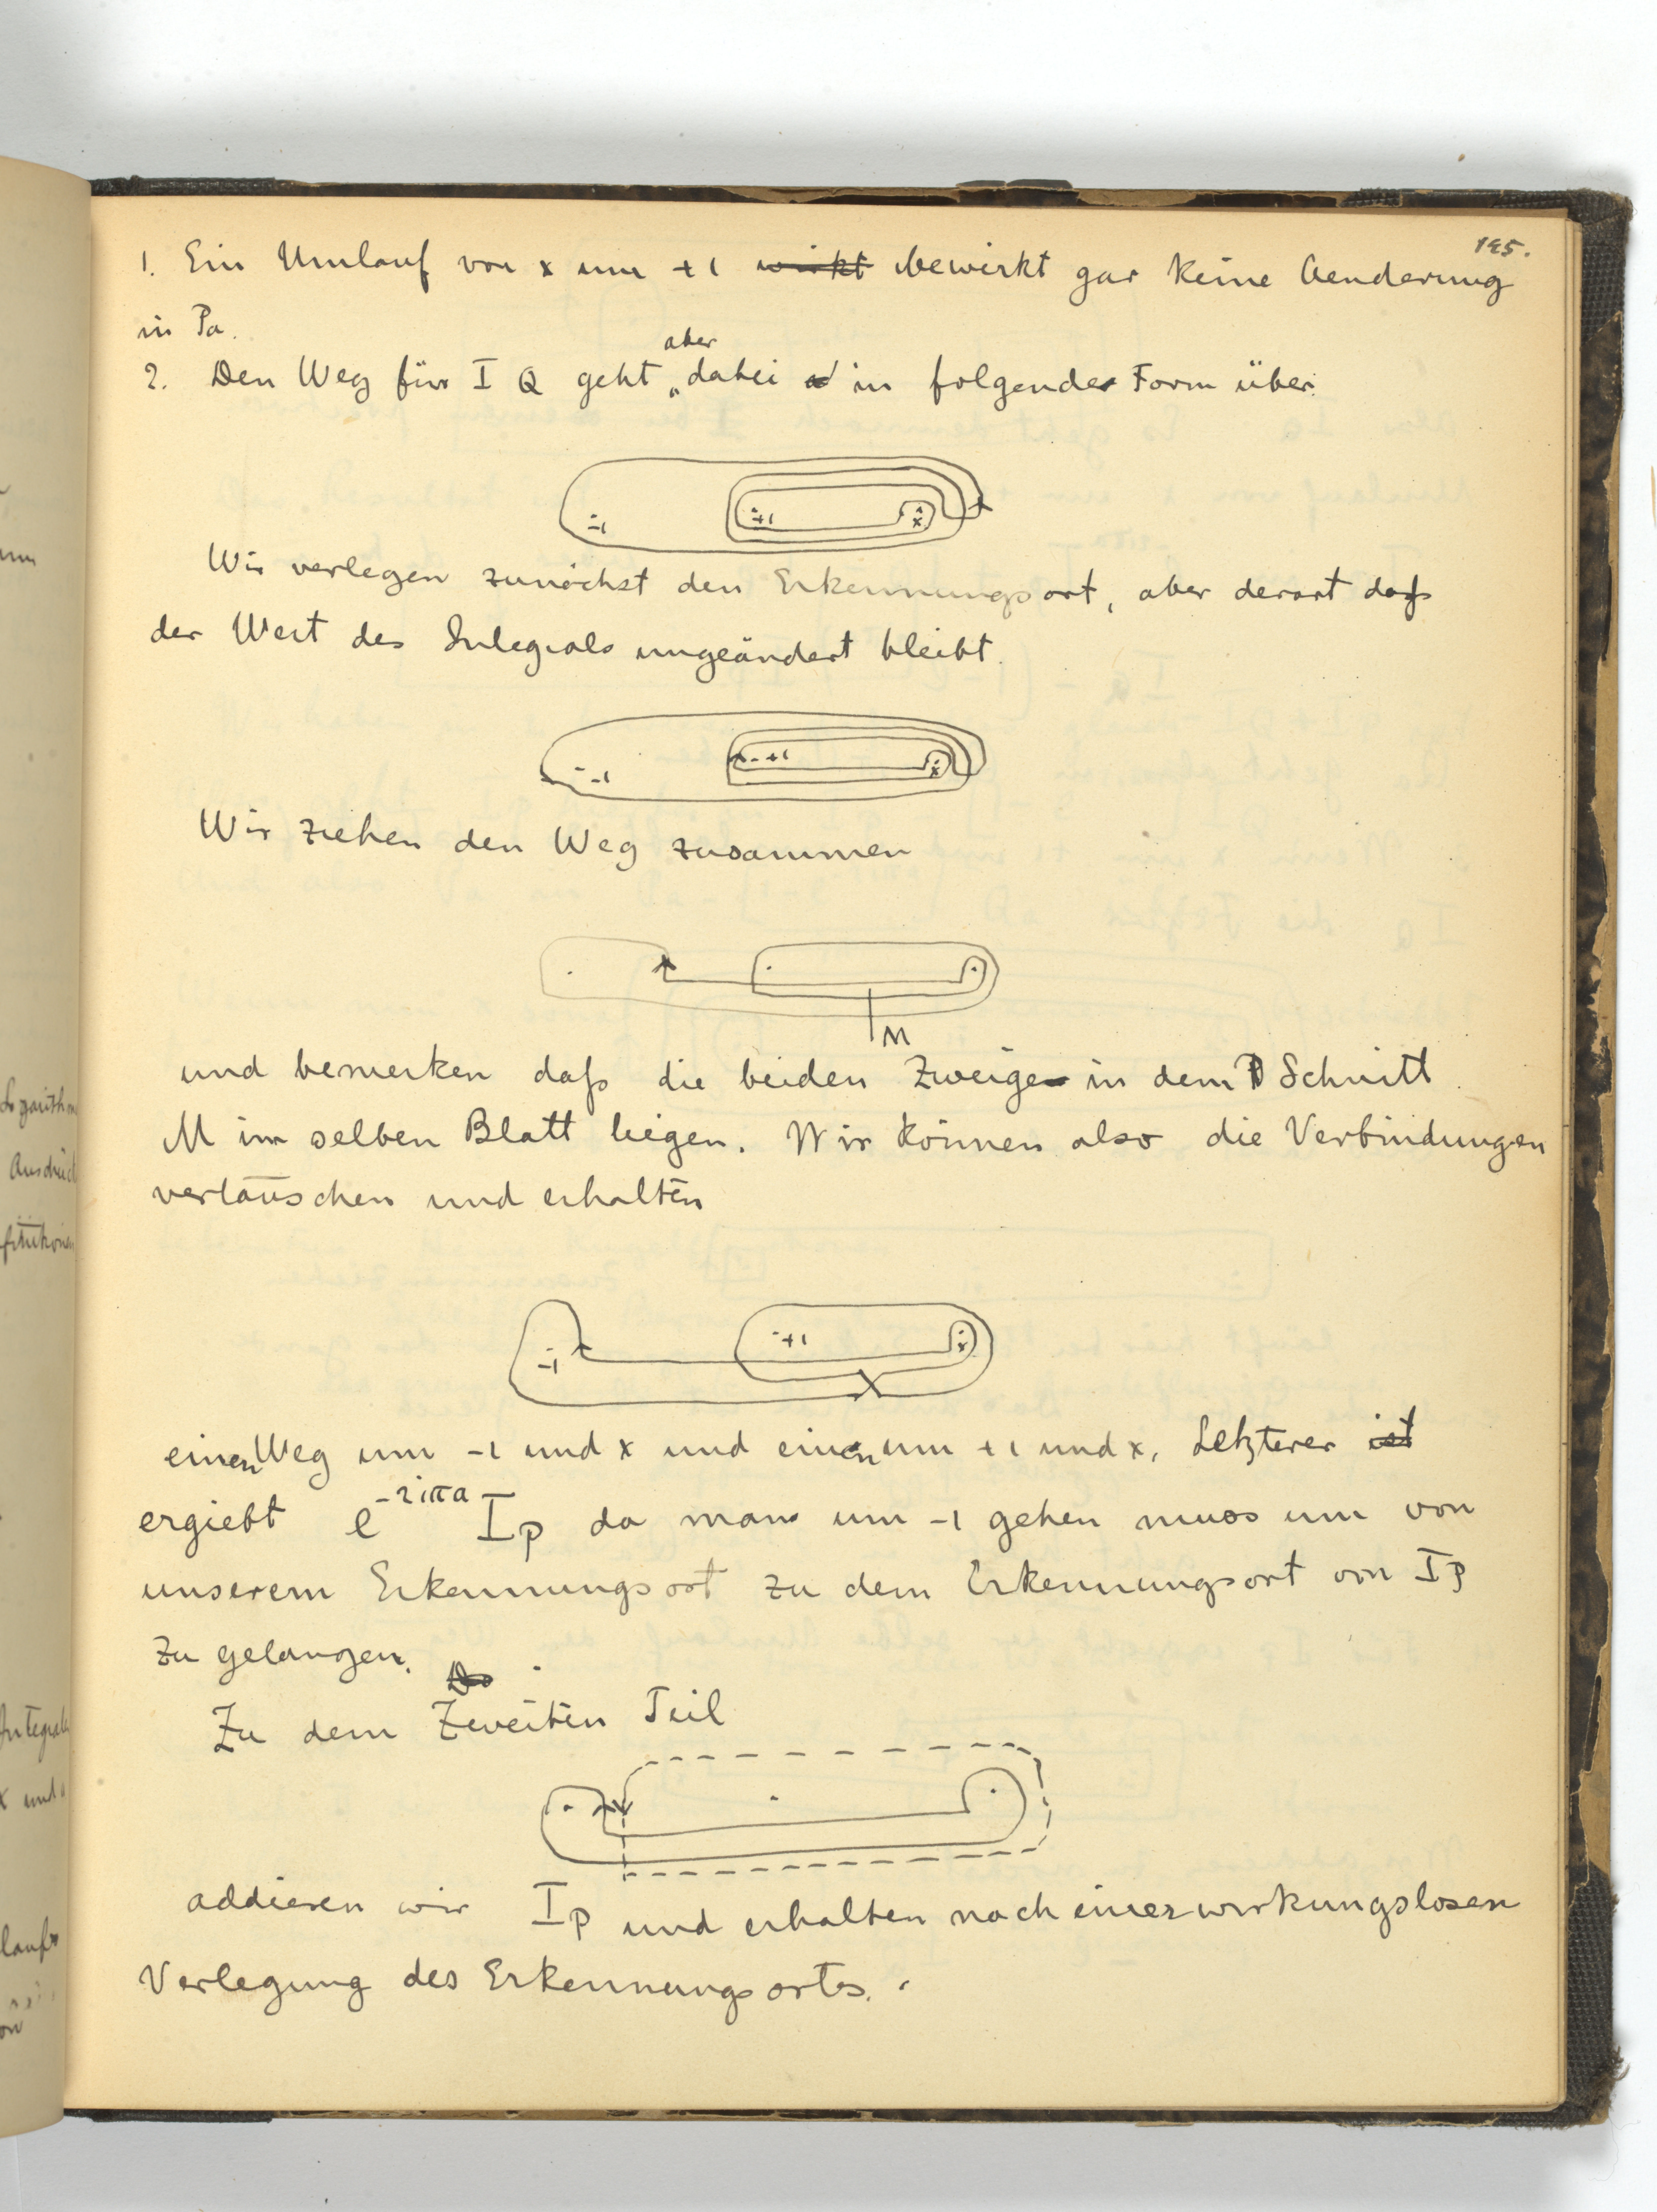 195.
1. Ein Umlauf von x um +1 wirkt bewirkt gar keine Aenderung
in Pa.
aber
2. Den Weg für I Q geht dabei in folgender Form über:
-1 +1 x
Wir verlegen zunächst den Erkennungsort, aber derart dass
der Wert des Integrals ungeändert bleibt.
-1 +1 x
Wir ziehen den Weg zusammen
M
und bemerken dass die beiden Zweige in dem Schnitt
M im selben Blatt liegen. Wir können also die Verbindungen
vertauschen und erhalten
-1 +1 x
einen Weg um -1 und x und einen um +1 und x. Letzterer ist
ergiebt e^{-2iπa} I_P da man um -1 gehen muss um von
unserem Erkennungsort zu dem Erkennungsort von I_P
zu gelangen.
Zu dem Zweiten Teil
addieren wir I_P und erhalten nach einer wirkungslosen
Verlegung des Erkennungsorts.
Logarithm
x und